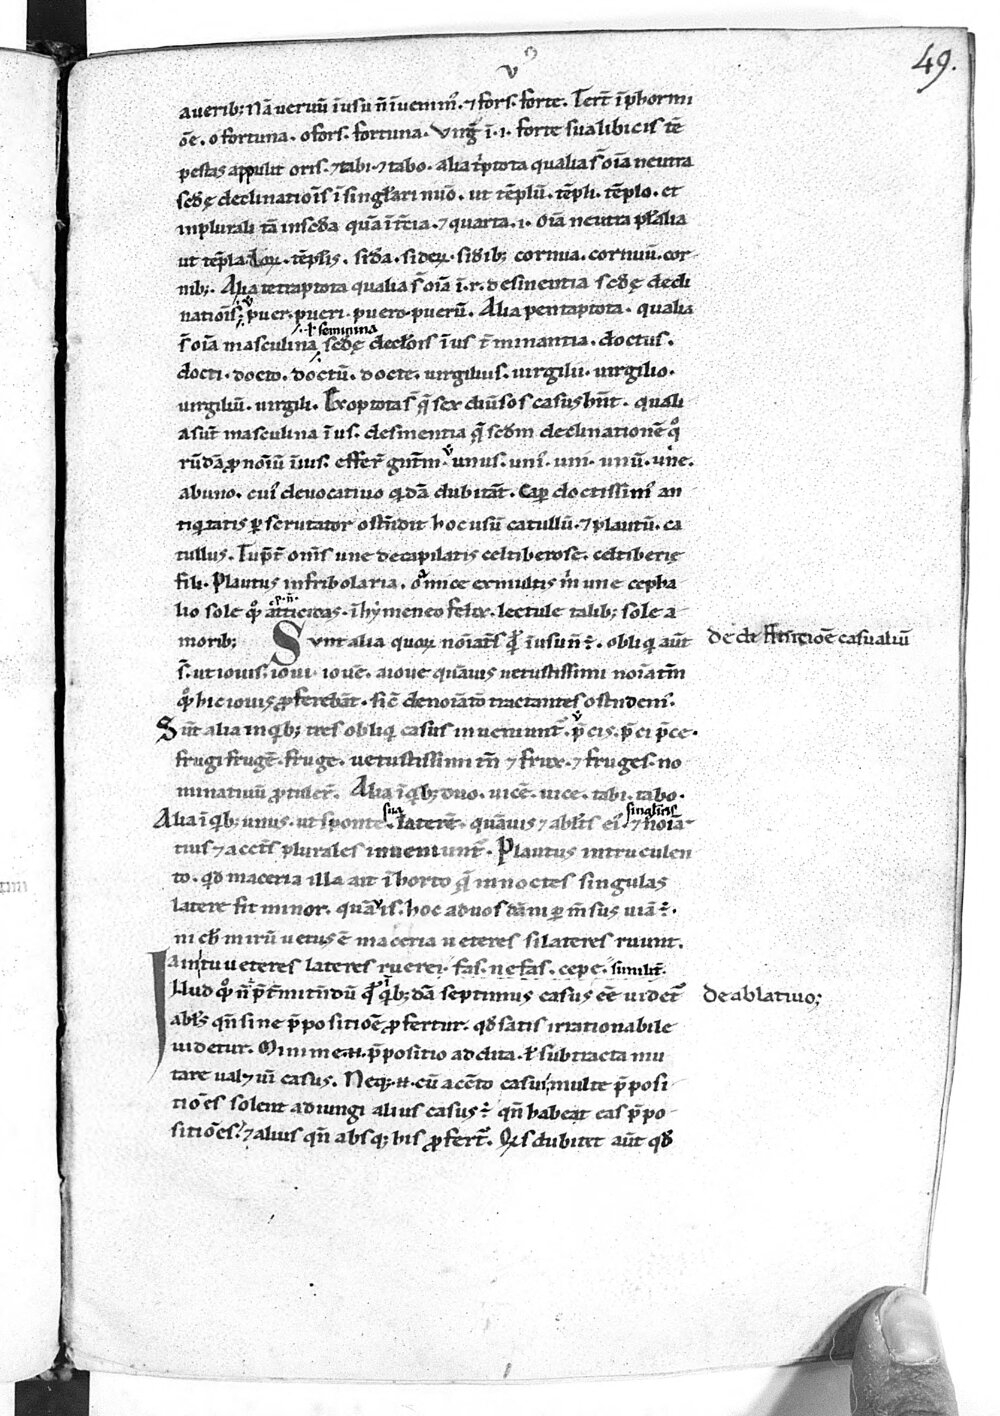 49.
v
auerib; Nā ueruū ī usu ñ īuenim᷒. ⁊ fors. forte. Terē. ī phormi
ōe. o fortuna. o fors. fortuna. Virg̅ ī .i. forte sua libicis tē
pestas appulit oris. ⁊ tabi. ⁊ tabo. alia tͥptota qualia s̄ oīa neutra
scd̄ę declinatiōis ī singłari nūo. ut tēplū. tēpli. tēplo. et
in plurali tā in scd̄a quā ī t̄cia. ⁊ quarta. .i. oīa neutra płalia
ut tēpla. loꝝ. tēplis. sid̄a. sideꝝ. sid̄ib; cornua. cornuū. cor
nib;. Alia tetraptota qualia s̄ oīa ī .r. desinentia scd̄ę decli
natiōis; v̇ puer. pueri. puero. puerū. Alia pentaptota. qualia
ł feminina
s̄ oīa masculina scd̄ę declōis ī us t̄minantia. doctus.
docti. docto. doctū. docte. uirgilius. uirgilii. uirgilio.
uirgiliū. uirgili. Exoptota s̄ q̄ sex diūsos casus hn̄t. quali
a sun̄t masculina ī us. desinentia q̄ scd̄m declinationē q᷒
rūdā ꝓnoīū ī ius. effer̄ gn̄tm v̇ unus. uni᷒. uni. unū. une.
ab uno. cui᷒ de uocatiuo q̇dā dubitāt. Cap̄ doctissim᷒ an
tiq̇tatis ꝑscrutator ostn̄dit hoc usū catullū. ⁊ plautū. ca
tullus. Tu p̄t̄ om̄is une de capilatis celtiberose. celtiberię
fili. Plautus in fribolaria. o amice ex multis m̄ une cepha
lio sole q᷒ atticteas. ī hymeneo felix. lectule talib; sole a
p. n̄.
morib; Sunt alia quoꝝ noīat̄s q᷒ ī usu n̄ ÷. obliq̇ aūt
de defectiōe casualiū
s̄. ut iouis. ioui. iouē. a ioue quāuis uetustissimi noīatm̄
q᷒ hic iouis ꝓferebāt. sic̄ de noīatō tractantes ostendem᷒.
Sūt alia in q̇b; tres obliq̇ casus inueniunt᷑. v̇ p̄cis. p̄ci p̄ce.
frugi frugē. fruge. uetustissimi tn̄ ⁊ frux. ⁊ fruges. no
minatiuū ꝓtuler̄. Alia ī q̇b; duo. uicē. uice. tabi. tabo.
Alia ī q̇b; unus. ut sponte sua. ł laterē. quāuis ⁊ ablt̄s ei᷒ singłaris. ⁊ noīa
tius ⁊ accīs plurales inueniunt᷑. Plautus in truculen
to. qđ maceria illa ait ī horto q̄ in noctes singulas
latere fit minor. quāuis. hoc ad uos dā̄ni ꝑ m̄sus uiā ÷.
ni cb̄ mirū uetus ē maceria ueteres si lateres ruunt.
ain̄ tu ueteres lateres ruere? fas. nefas. cepe. similit̄.
Illud q᷒ n̄ p̄t̄mitn̄dū q᷒ q̇b; dā septimus casus eē uidet᷑
de ablatiuo;
abłs qn̄ sine p̄positiōe ꝓfertur. qđ satis irrationabile
uidetur. Minime .n. p̄positio addita. ł subtracta mu
tare ual; uī casus. Neq; .n. cū accīo casui multe p̄posi
tiōes solent adiungi alius casus ÷ qn̄ habeat eas p̄po
sitiōes? ⁊ alius qn̄ absq; his ꝓfert᷑. Q̇s dubitet aūt qđ